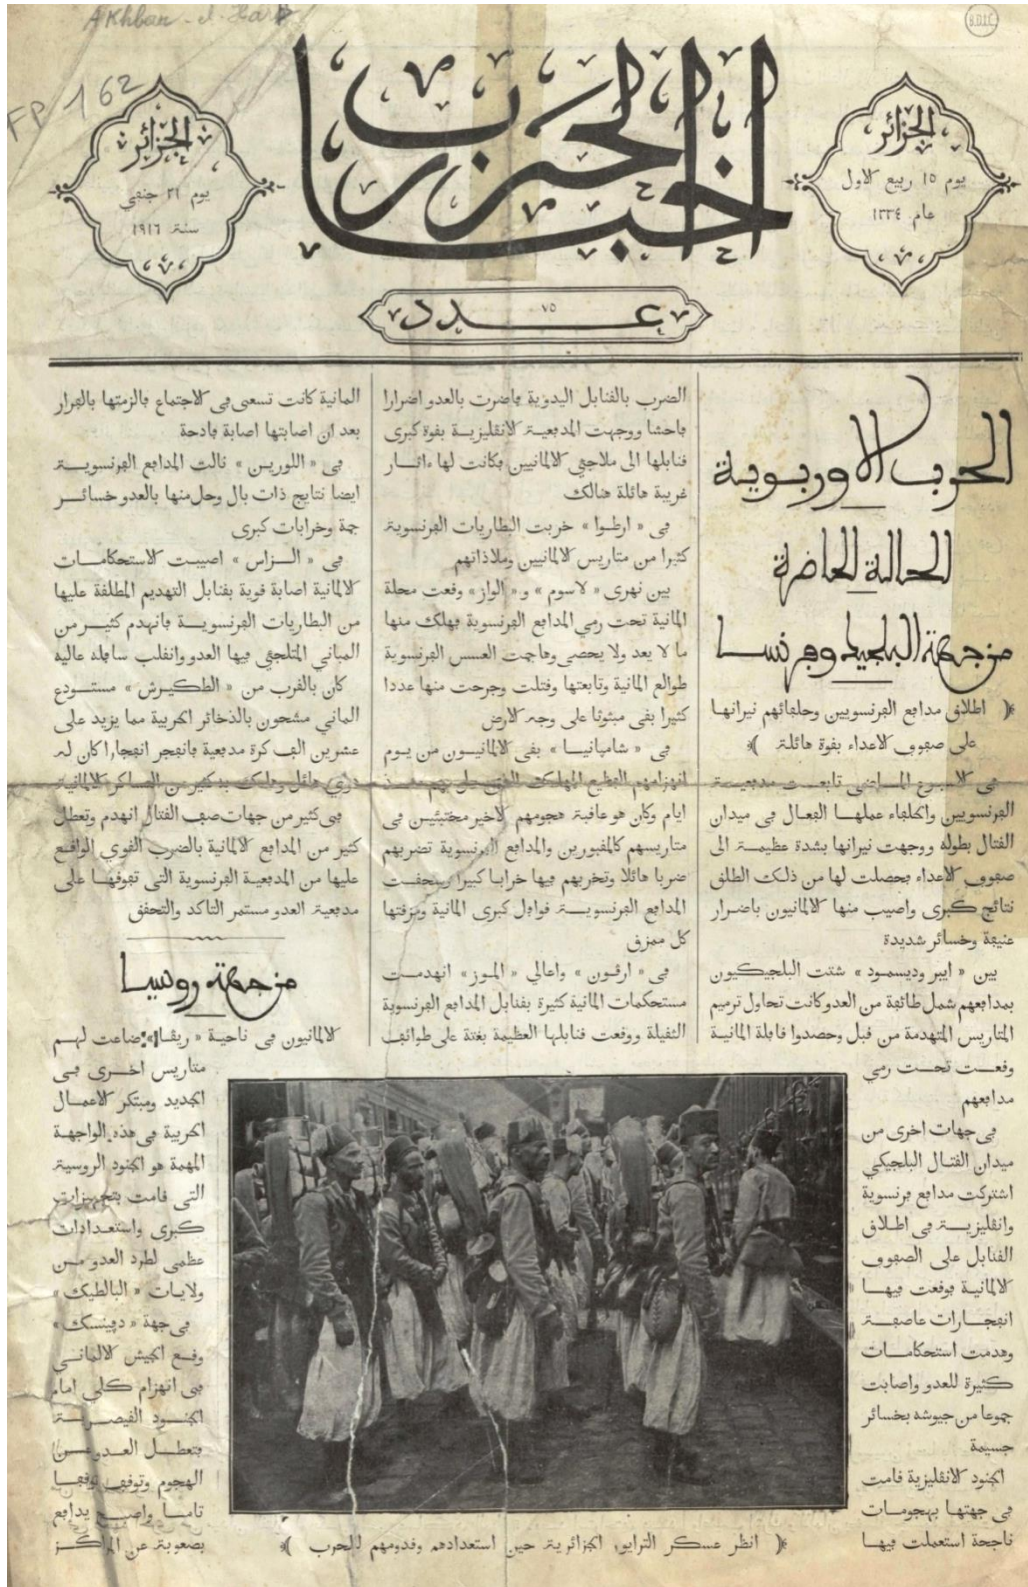 Akhbar-el-Harb
B.D.I.C.
FP 162
اخبار الحرب
الجزائر
يوم ١٥ ربيع الاول
عام ١٣٣٤
الجزائر
يوم ٢١ جنفي
سنة ١٩١٦
عدد ٧٥
الحرب الاوروبوية
الحالة الحاضرة
من جهة البلجيك وفرنسا
﴿ اطلاق مدافع الفرنسويين وحلفائهم نيرانها
على صفوف الاعداء بقوة هائلة ﴾
في الاسبوع الماضي تابعت مدفعية
الفرنسويين والحلفاء عملها الفعال في ميدان
القتال بطوله ووجهت نيرانها بشدة عظيمة الى
صفوف الاعداء فحصلت لها من ذلك الطلق
نتائج كبرى واصيب منها الالمانيون باضرار
عنيفة وخسائر شديدة
بين « ايبر وديسمود » شتت البلجيكيون
بمدافعهم شمل طائفة من العدو كانت تحاول ترميم
المتاريس المتهدمة من قبل وحصدوا قافلة المانية
وقعت تحت رمي
مدافعهم
في جهات اخرى من
ميدان القتال البلجيكي
اشتركت مدافع فرنسوية
وانقليزية في اطلاق
القنابل على الصفوف
الالمانية فوقعت فيها
انفجارات عاصفة
وهدمت استحكامات
كثيرة للعدو واصابت
جموعا من جيوشه بخسائر
جسيمة
الجنود الانقليزية قامت
في جهتها بهجومات
ناجحة استعملت فيها
الضرب بالقنابل اليدوية فاضرت بالعدو اضرارا
فاحشا ووجهت المدفعية الانقليزية بقوة كبرى
قنابلها الى ملاجئ الالمانيين فكانت لها ءاثار
غريبة هائلة هنالك
في « ارطوا » خربت البطاريات الفرنسوية
كثيرا من متاريس الالمانيين وملاذاتهم
بين نهري « لاسوم » و« الواز » وقعت محلة
المانية تحت رمي المدافع الفرنسوية فهلك منها
ما لا يعد ولا يحصى وهاجمت العسس الفرنسوية
طوالع المانية وتابعتها وقتلت وجرحت منها عددا
كثيرا بقى مبثوثا على وجه الارض
في « شامبانيا » بقى الالمانيون من يوم
انهزامهم الفظيع المهلك الذي حل بهم منذ
ايام وكان هو عاقبة هجومهم الاخير مختبئين في
متاريسهم كالمقبورين والمدافع الفرنسوية تضربهم
ضربا هائلا وتخربهم فيها خرابا كبيرا وسحقت
المدافع الفرنسوية قوافل كبرى المانية ومزقتها
كل ممزق
في « ارقون » واعالي « الموز » انهدمت
مستحكمات المانية كثيرة بقنابل المدافع الفرنسوية
الثقيلة ووقعت قنابلها العظيمة بغتة على طوائف
المانية كانت تسعى في الاجتماع فالزمتها بالفرار
بعد ان اصابتها اصابة فادحة
في « اللورين » نالت المدافع الفرنسوية
ايضا نتايج ذات بال وحل منها بالعدو خسائر
جمة وخرابات كبرى
في « الزاس » اصيبت الاستحكامات
الالمانية اصابة قوية بقنابل التهديم المطلقة عليها
من البطاريات الفرنسوية فانهدم كثير من
المباني الملتجئ فيها العدو وانقلب سافله عاليه
كان بالقرب من « الطكيرش » مستودع
الماني مشحون بالذخائر الحربية مما يزيد على
عشرين الف كرة مدفعية فانفجر انفجارا كان له
دوي هائل وهلك به كثير من العساكر الالمانية
في كثير من جهات صف القتال انهدم وتعطل
كثير من المدافع الالمانية بالضرب القوي الواقع
عليها من المدفعية الفرنسوية التي تفوقها على
مدفعية العدو مستمر التاكد والتحقق
من جهة روسيا
الالمانيون في ناحية « ريقا » ضاعت لهم
متاريس اخرى في
الجديد ومبتكر الاعمال
الحربية في هذه الواجهة
المهمة هو الجنود الروسية
التي قامت بتجهيزات
كبرى واستعدادات
عظمى لطرد العدو من
ولايات « البالطيك »
في جهة « دفينسك »
وقع الجيش الالماني
في انهزام كلي امام
الجنود القيصرية
فتعطل العدو عن
الهجوم وتوقف توقفا
تاما واصبح يدافع
بصعوبة عن المراكز
﴿ انظر عسكر الترايور الجزائرية حين استعدادهم وقدومهم للحرب ﴾